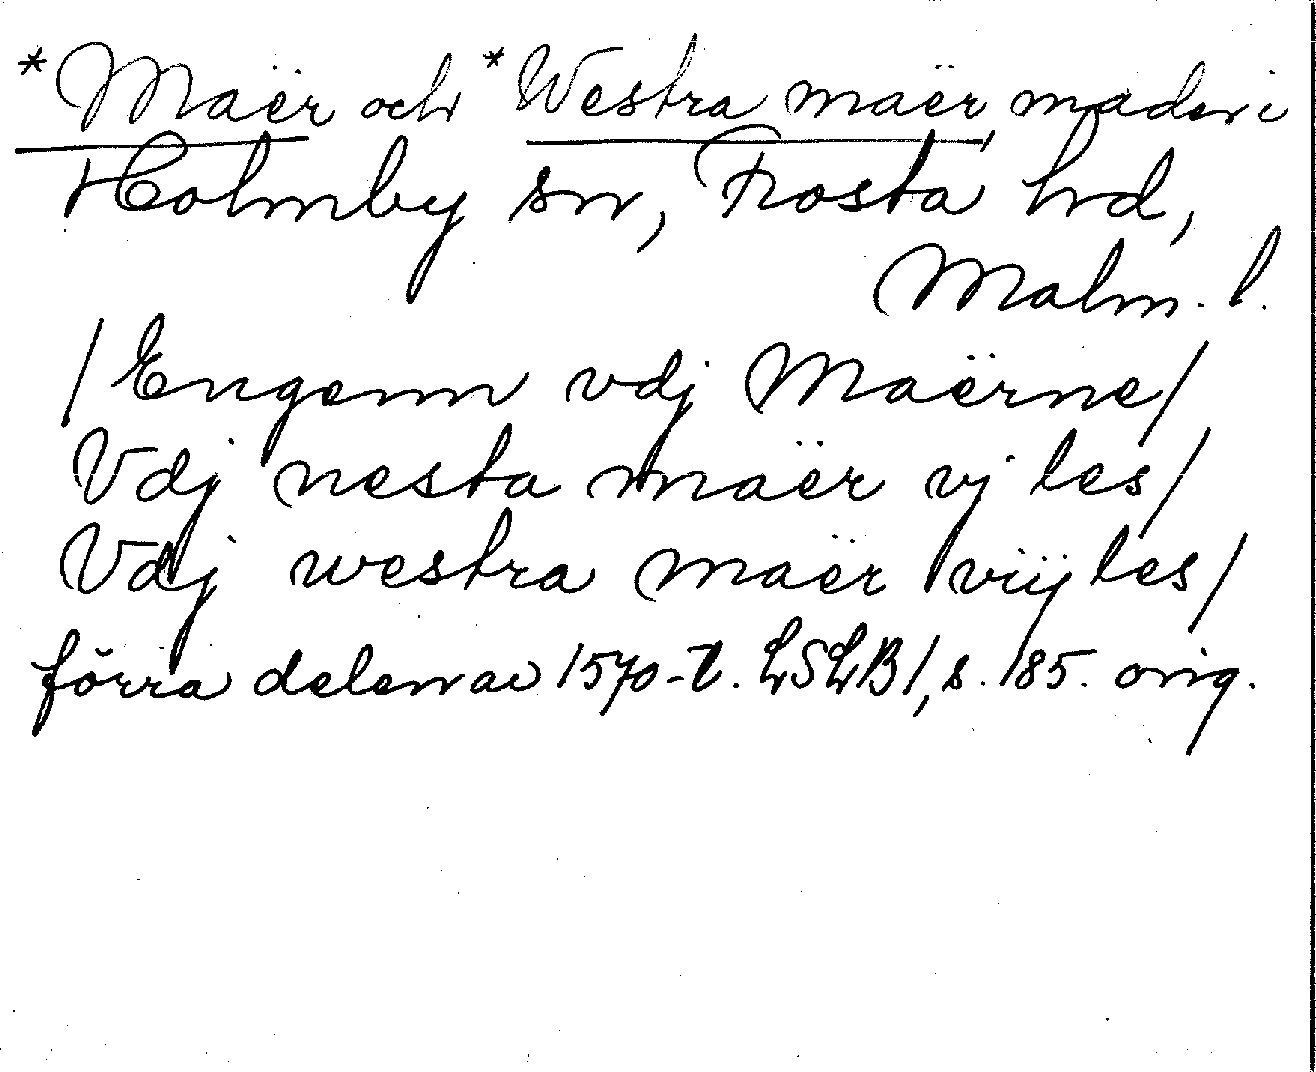 *Maër och *Westra maër, mader i
Holmby sn, Frosta hd,
Malm. l.
/Engenn vdj Maërne/
Vdj nesta maër vj les/
Vdj westra maër viij les/
förra delen av 1570-t. LSLB1, s. 185. orig.